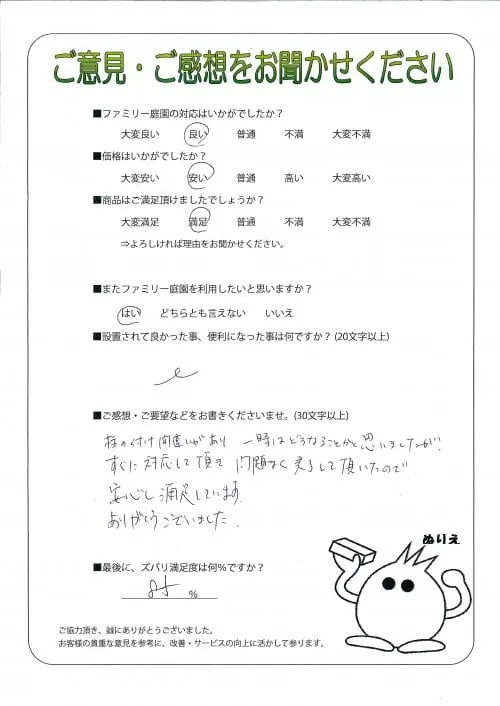 ご意見・ご感想をお聞かせください
■ファミリー庭園の対応はいかがでしたか？
大変良い 良い 普通 不満 大変不満
■価格はいかがでしたか？
大変安い 安い 普通 高い 大変高い
■商品はご満足頂けましたでしょうか？
大変満足 満足 普通 不満 大変不満
⇒よろしければ理由をお聞かせください。
■またファミリー庭園を利用したいと思いますか？
はい どちらとも言えない いいえ
■設置されて良かった事、便利になった事は何ですか？(20文字以上)
■ご感想・ご要望などをお書きくださいませ。(30文字以上)
柱の付け間違いがあり 一時はどうなることかと思いましたが!
すぐに対応して頂き 問題なく完了して頂いたので
安心し満足しています
ありがとうございました.
ぬりえ
■最後に、ズバリ満足度は何%ですか？
%
ご協力頂き、誠にありがとうございました。
お客様の貴重な意見を参考に、改善・サービスの向上に活かして参ります。